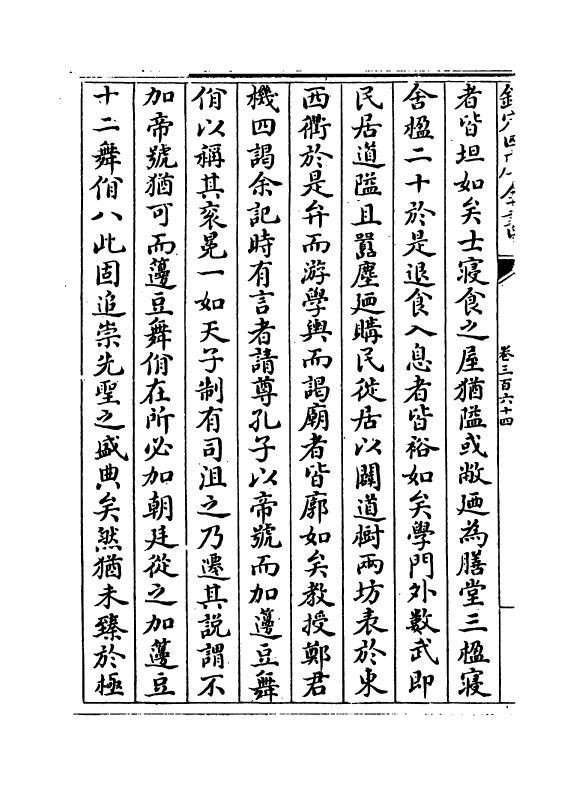 欽定四庫全書
卷三百六十四
者皆坦如矣士寢食之屋猶隘或敝廼為膳堂三楹寢
舍楹二十於是退食入息者皆裕如矣學門外數武即
民居道隘且囂塵廼購民徙居以闢道樹兩坊表於東
西衢於是弁而游學輿而謁廟者皆廓如矣教授鄭君
機四謁余記時有言者請尊孔子以帝號而加籩豆舞
佾以稱其衮冕一如天子制有司沮之乃遷其説謂不
加帝號猶可而籩豆舞佾在所必加朝廷從之加籩豆
十二舞佾八此固追崇先聖之盛典矣然猶未臻於極